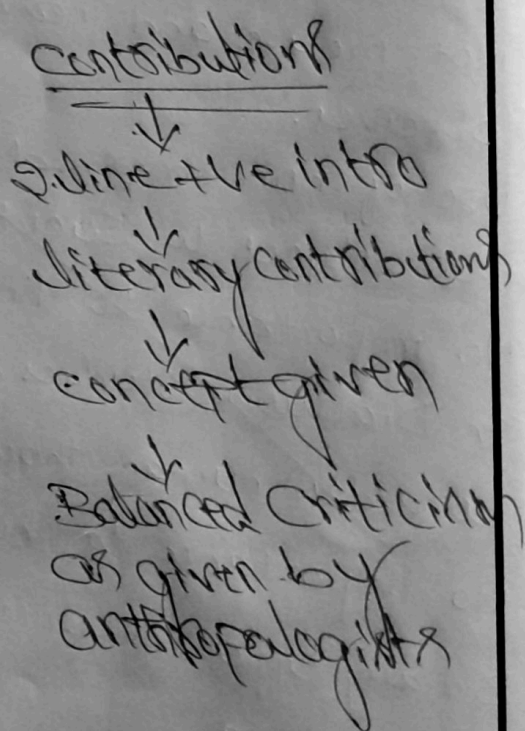 contributions
↓
2 line +ve intro
↓
literary contributions
↓
concept given
↓
Balanced criticism
as given by
anthropologists